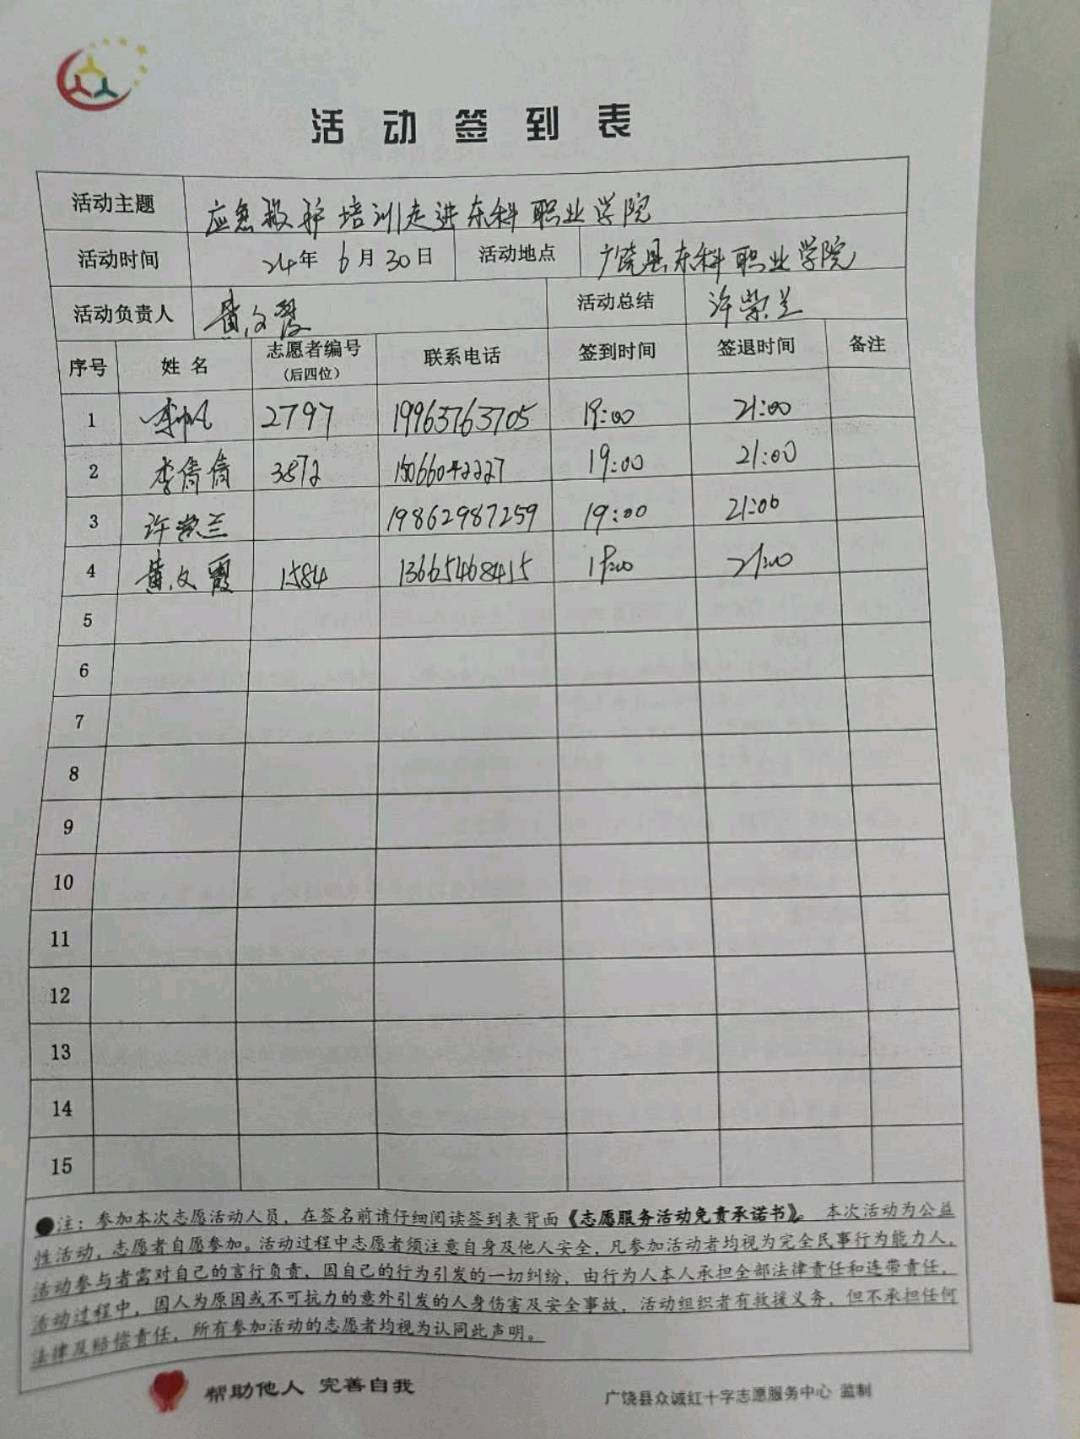 活动签到表
活动主题 应急救护培训走进东科职业学院
活动时间 24年6月30日 活动地点 广饶县东科职业学院
活动负责人 黄文霞 活动总结 许崇兰
序号 姓名 志愿者编号 联系电话 签到时间 签退时间 备注
(后四位)
1 李帆 2797 19963763705 19:00 21:00
2 李倩倩 3872 15066042227 19:00 21:00
3 许崇兰 19862987259 19:00 21:00
4 黄文霞 1584 13665468415 19:00 21:00
5
6
7
8
9
10
11
12
13
14
15
●注：参加本次志愿活动人员，在签名前请仔细阅读签到表背面《志愿服务活动免责承诺书》。本次活动为公益
性活动，志愿者自愿参加。活动过程中志愿者须注意自身及他人安全，凡参加活动者均视为完全民事行为能力人，
活动参与者需对自己的言行负责，因自己的行为引发的一切纠纷，由行为人本人承担全部法律责任和连带责任，
活动过程中，因人为原因或不可抗力的意外引发的人身伤害及安全事故，活动组织者有救援义务，但不承担任何
法律及赔偿责任，所有参加活动的志愿者均视为认同此声明。
帮助他人 完善自我 广饶县众诚红十字志愿服务中心 监制